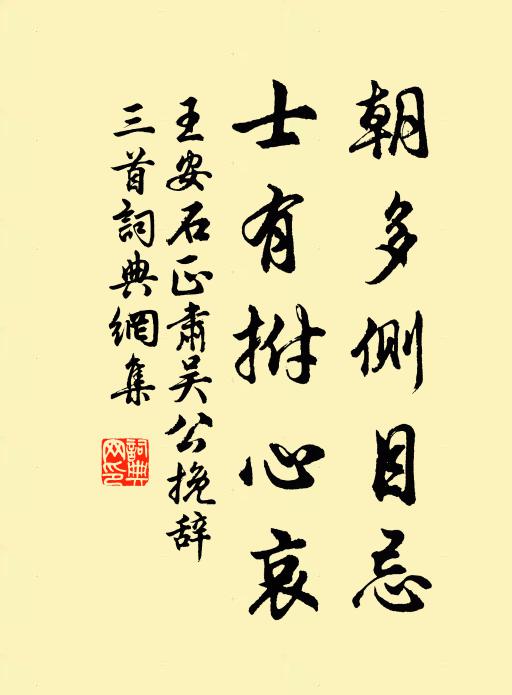 朝多側目忌
士有拊心哀
王安石正肅吴公挽辞
三首詞典網集
詞典網印